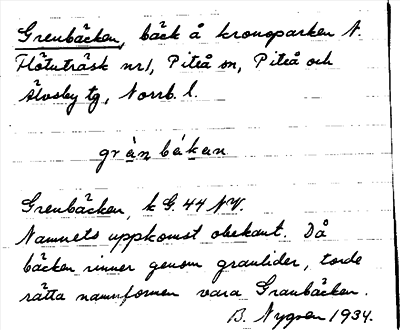 Grenbäcken, bäck å kronoparken N.
Flötuträsk nr1, Piteå sn, Piteå och
Älvsby tg, Norrb. l.
grànbákan
Grenbäcken, k G. 44 NV.
Namnets uppkomst obekant. Då
bäcken rinner genom granlider, torde
rätta namnformen vara Granbäcken.
B. Nygren 1934.